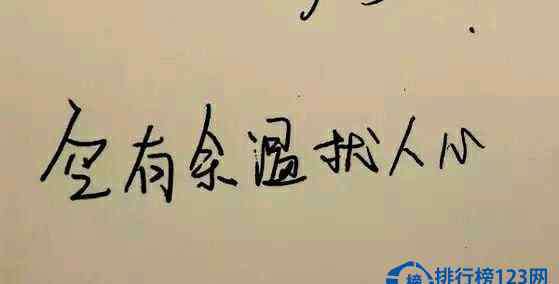 空有余温扰人心
榜 排行榜123网